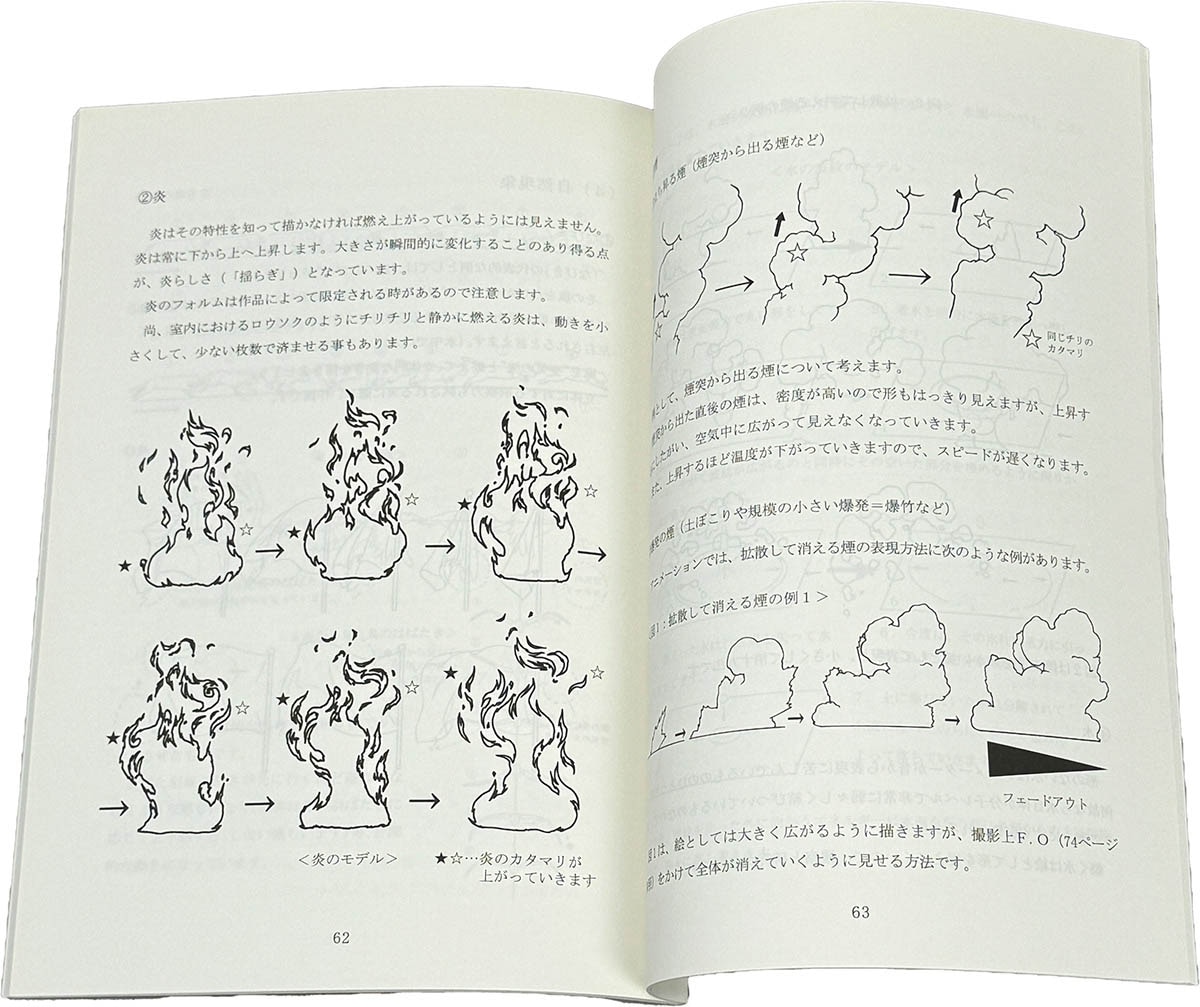 ②炎
炎はその特性を知って描かなければ燃え上がっているようには見えません。
炎は常に下から上へ上昇します。大きさが瞬間的に変化することのあり得る点
が、炎らしさ（「揺らぎ」）となっています。
炎のフォルムは作品によって限定される時があるので注意します。
尚、室内におけるロウソクのようにチリチリと静かに燃える炎は、動きを小
さくして、少ない枚数で済ませる事もあります。
★ ☆ → ★ ☆ → ★ ☆ →
★ ☆ → ★ ☆ → ★ ☆
＜炎のモデル＞
★☆…炎のカタマリが
上がっていきます
62
昇る煙（煙突から出る煙など）
☆ → ☆ → ☆
☆ 同じチリの
カタマリ
として、煙突から出る煙について考えます。
突から出た直後の煙は、密度が高いので形もはっきり見えますが、上昇す
したがい、空気中に広がって見えなくなっていきます。
また、上昇するほど温度が下がっていきますので、スピードが遅くなります。
発の煙（土ぼこりや規模の小さい爆発＝爆竹など）
ニメーションでは、拡散して消える煙の表現方法に次のような例があります。
図1：拡散して消える煙の例１＞
→ → →
フェードアウト
図１は、絵としては大きく広がるように描きますが、撮影上Ｆ.Ｏ（74ページ
をかけて全体が消えていくように見せる方法です。
63